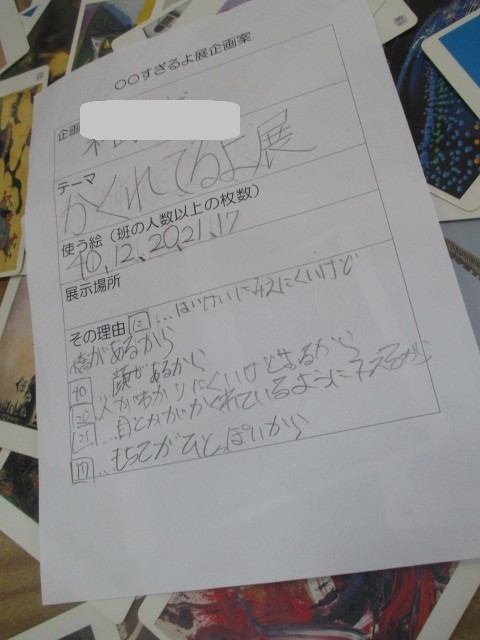 〇〇すぎるよ展企画案
企画
テーマ
かくれてるよ展
使う絵（班の人数以上の枚数）
40、12、20、21、17
展示場所
その理由 12 …はいけいにみえにくいけど
橋があるから
40 … 顔があるから
20 …人がわかりにくいけどあるから
21 …目とかがかくれているようにみえるから
17 …もようがひとっぽいから